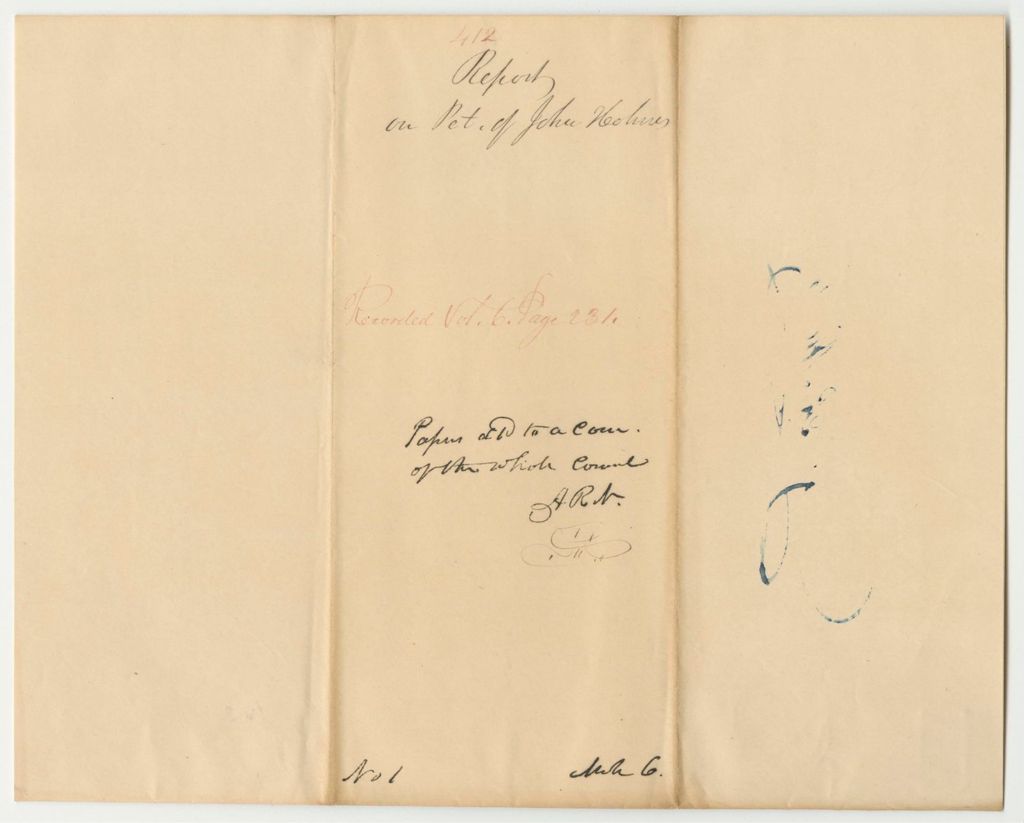 412
Report
on Pet. of John Holmes
Recorded Vol. 6. Page 231.
Papers to a Com.
of the whole Council
A.R.N.
No 1
6.